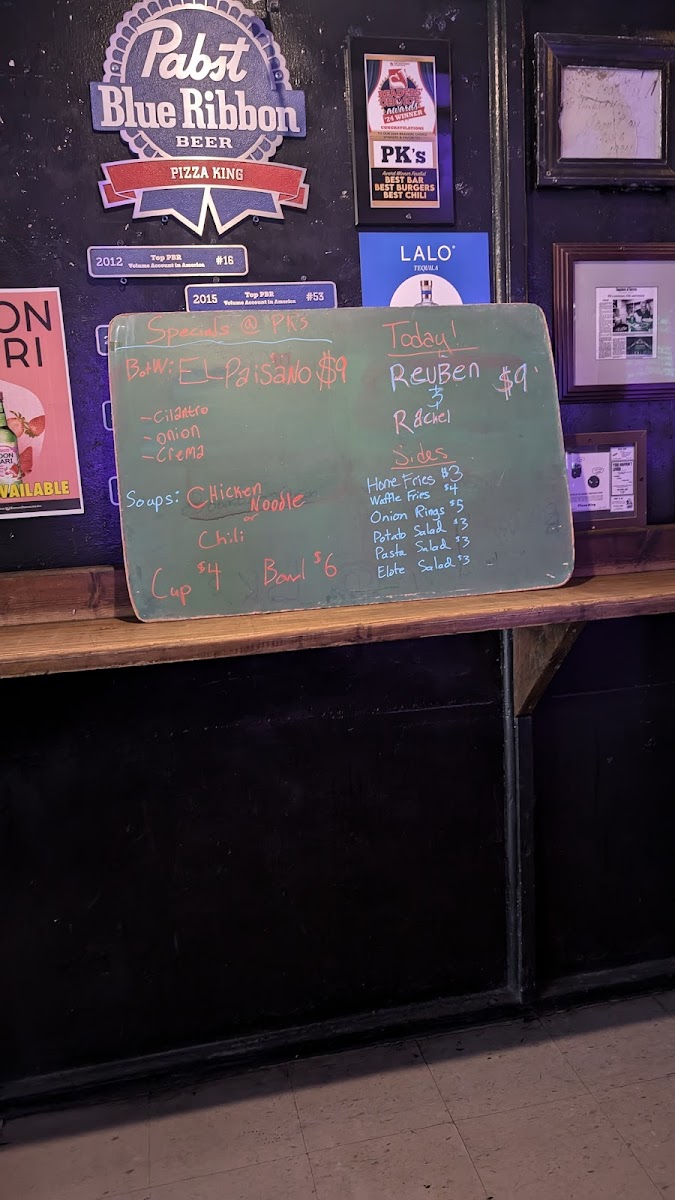 Pabst
Blue Ribbon
BEER
PIZZA KING
2012 Top PBR
Volume Account in America #16
2015 Top PBR
Volume Account in America #53
READERS'
CHOICE
awards
'24 WINNER
CONGRATULATIONS
PK's
Award Winner Finalist
BEST BAR
BEST BURGERS
BEST CHILI
LALO
TEQUILA
ON
RI
AVAILABLE
Specials @ PK's
BotW: EL PaisaNO $9
- Cilantro
- onion
- Crema
Soups: Chicken
Noodle
or
Chili
Cup $4 Bowl $6
Today!
ReuBen $9
&
Rachel
Sides
Home Fries $3
Waffle Fries $4
Onion Rings $5
Potato Salad $3
Pasta Salad $3
Elote Salad $3